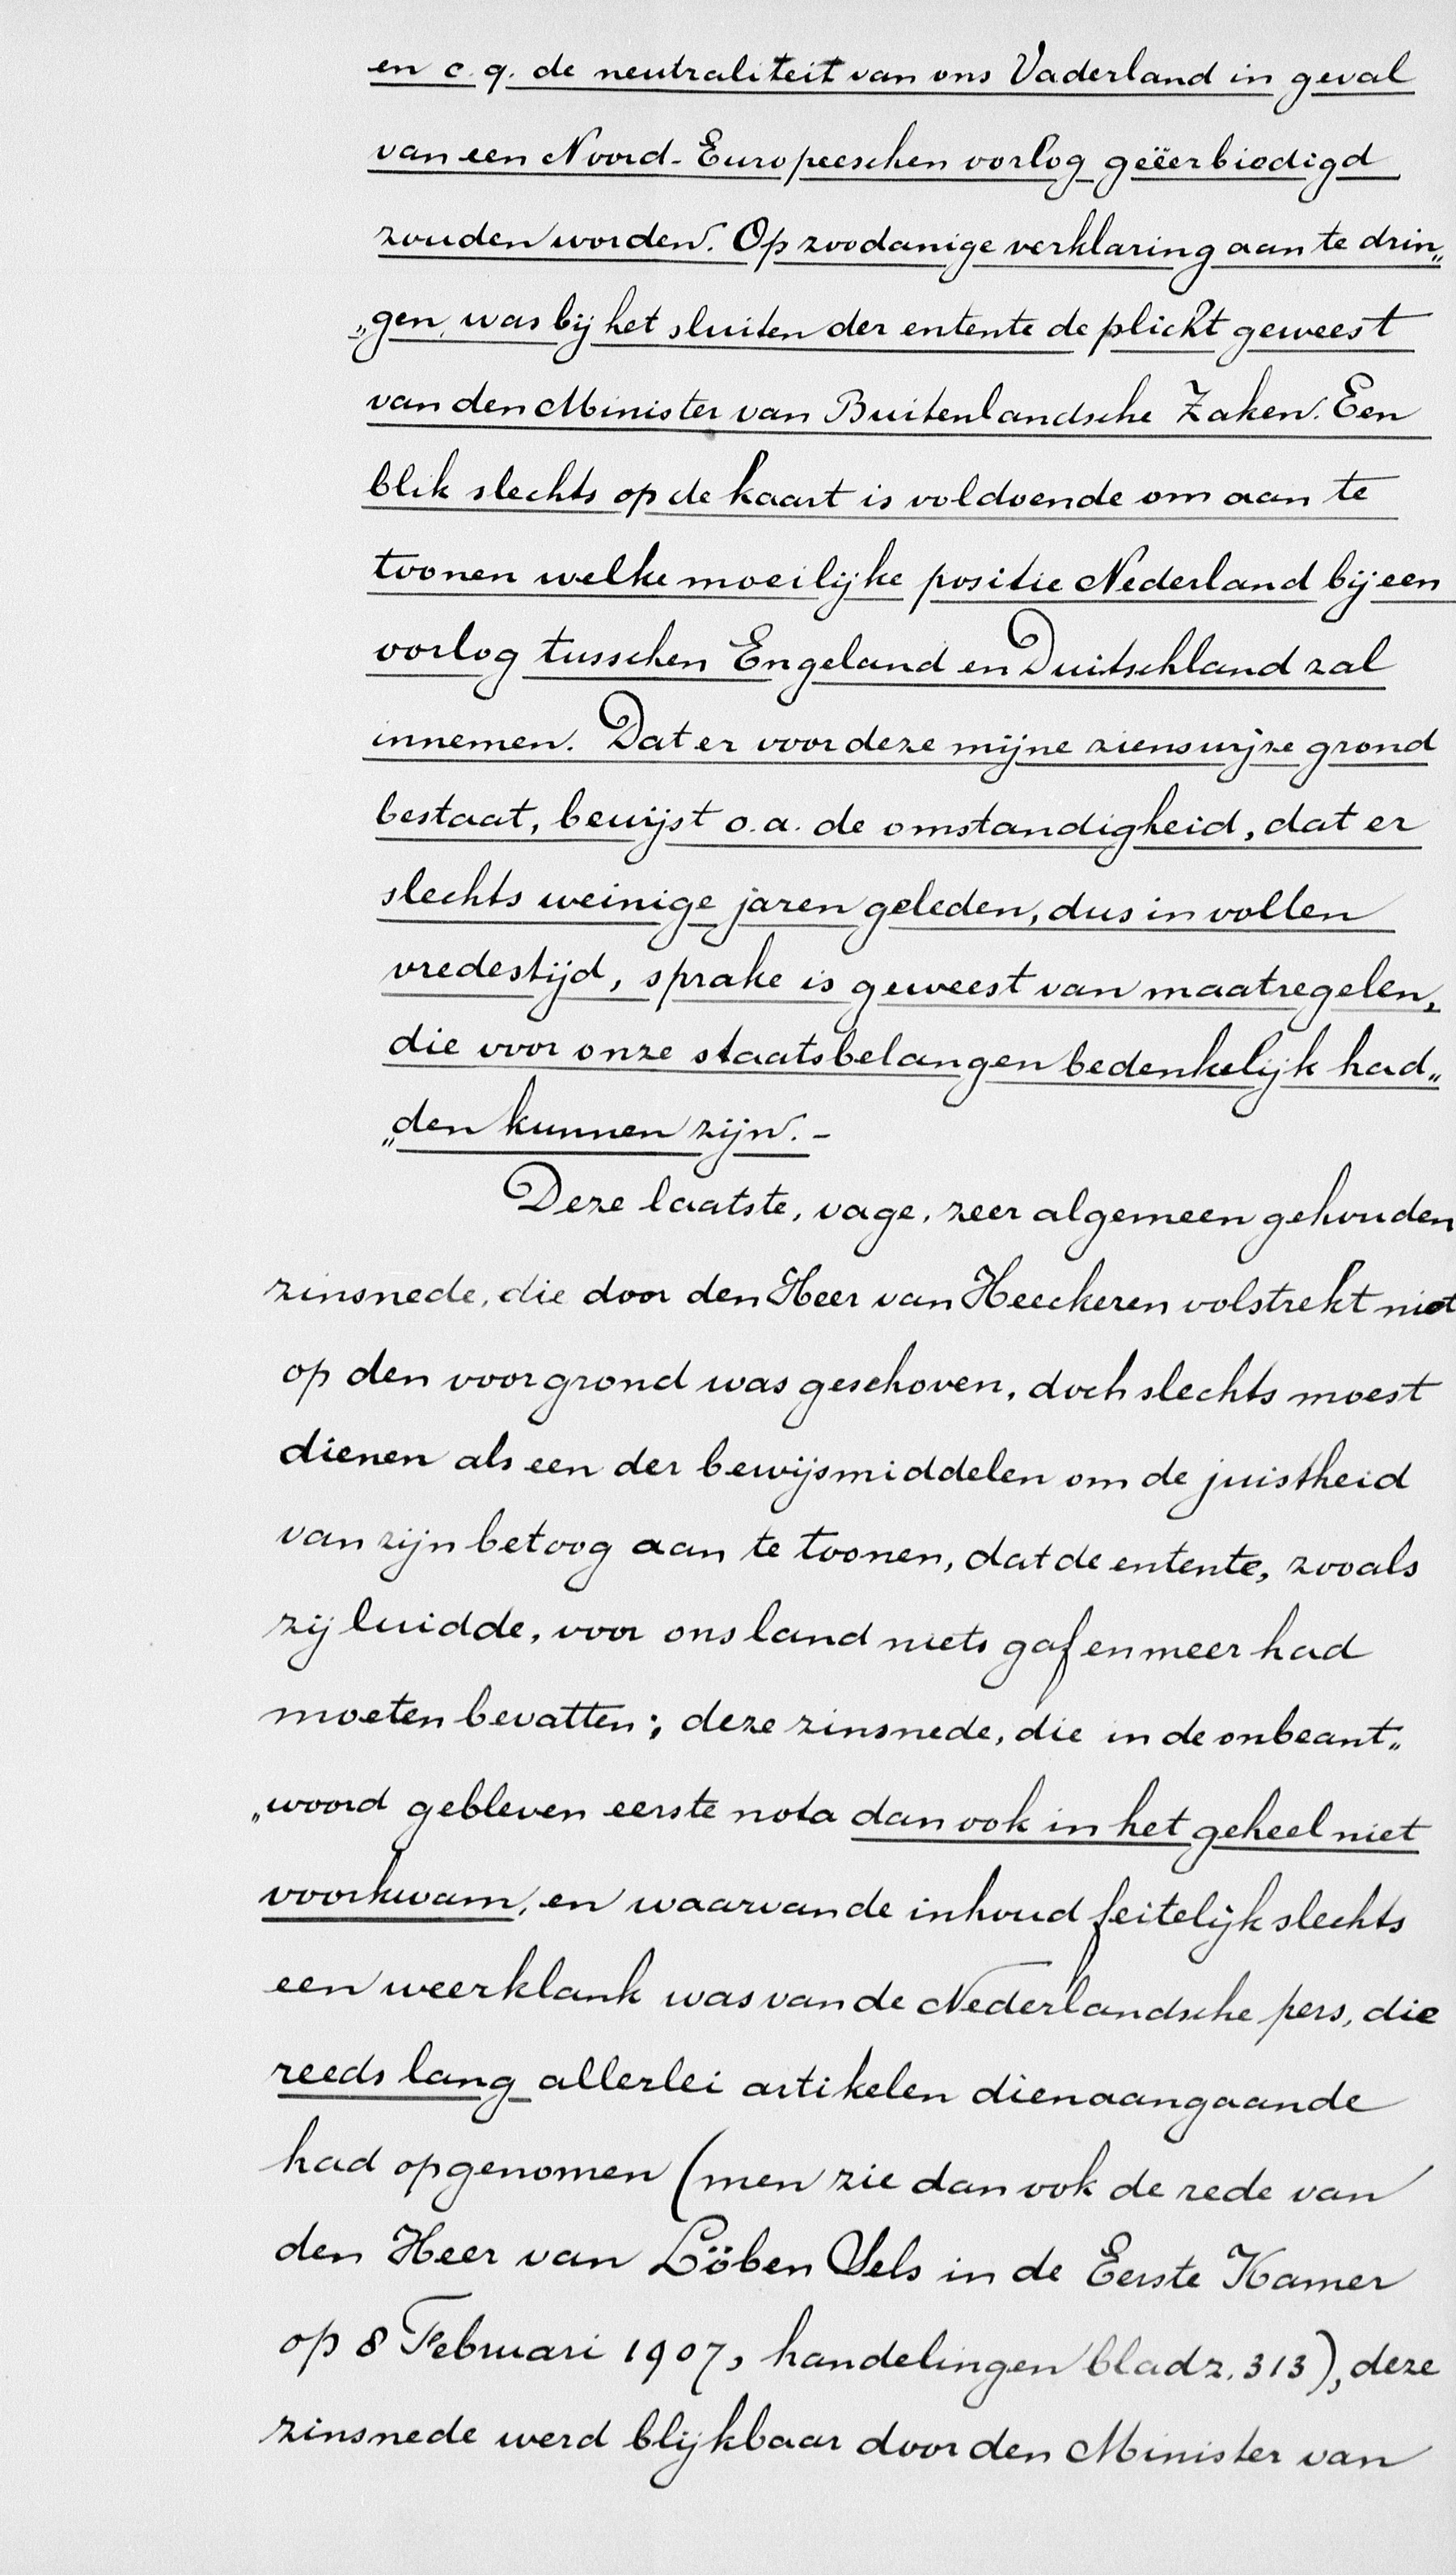 en c.q. de neutraliteit van ons Vaderland in geval
van een Noord-Europeeschen oorlog geëerbiedigd
zouden worden. Op zoodanige verklaring aan te drin„
„gen, was bij het sluiten der entente de plicht geweest
van den Minister van Buitenlandsche Zaken. Een
blik slechts op de kaart is voldoende om aan te
toonen welke moeilijke positie Nederland bij een
oorlog tusschen Engeland en Duitschland zal
innemen. Dat er voor deze mijne zienswijze grond
bestaat, bewijst o.a. de omstandigheid, dat er
slechts weinige jaren geleden, dus in vollen
vredestijd, sprake is geweest van maatregelen,
die voor onze staatsbelangen bedenkelijk had„
„den kunnen zijn.-
Deze laatste, vage, zeer algemeen gehouden
zinsnede, die door den Heer van Heeckeren volstrekt niet
op den voorgrond was geschoven, doch slechts moest
dienen als een der bewijsmiddelen om de juistheid
van zijn betoog aan te toonen, dat de entente, zooals
zij luidde, voor ons land niets gaf en meer had
moeten bevatten; deze zinsnede, die in de onbeant„
„woord gebleven eerste nota dan ook in het geheel niet
voorkwam, en waarvan de inhoud feitelijk slechts
een weerklank was van de Nederlandsche pers, die
reeds lang allerlei artikelen dienaangaande
had opgenomen (men zie dan ook de rede van
den Heer van Löben Sels in de Eerste Kamer
op 8 Februari 1907, handelingen bladz. 313), deze
zinsnede werd blijkbaar door den Minister van